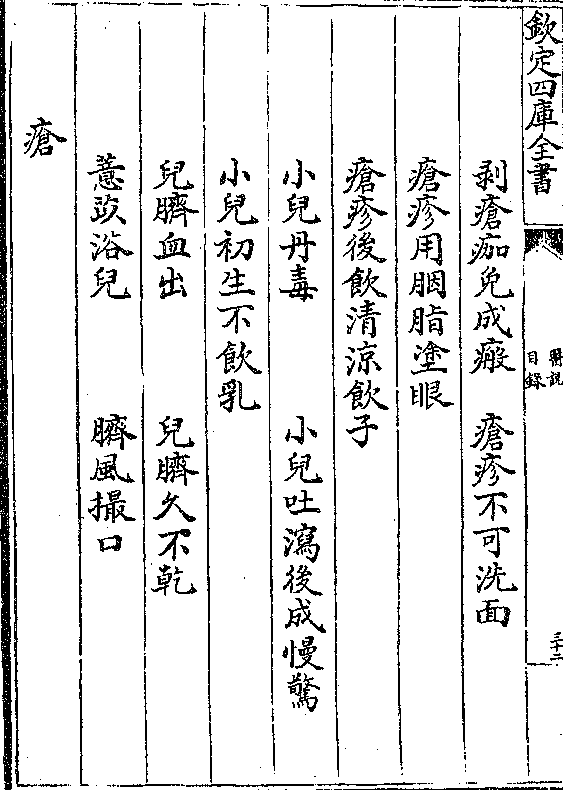 欽定四庫全書
醫說
目錄
三十二
剥瘡痂免成瘢　瘡疹不可洗面
瘡疹用胭脂塗眼
瘡疹後飲清凉飲子
小兒丹毒　小兒吐瀉後成慢驚
小兒初生不飲乳
兒臍血出　兒臍久不乾
薏苡浴兒　臍風撮口
瘡